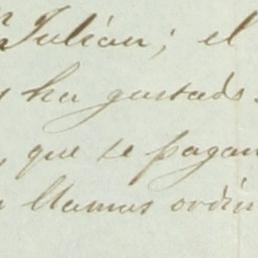 n Julián; el
ha gustado.
, que se pagan
llamas ordin